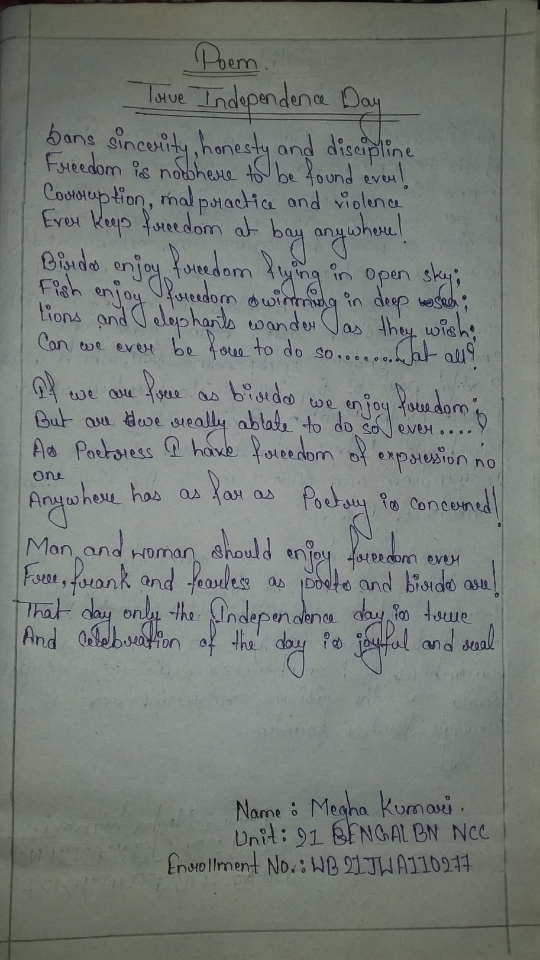 Poem.
True Independence Day
Sans sincerity, honesty and discipline
Freedom is nowhere to be found ever!
Corruption, malpractice and violence
Ever keep freedom at bay anywhere!
Birds enjoy freedom flying in open sky;
Fish enjoy freedom swimming in deep sea;
Lions and elephants wander as they wish;
Can we ever be free to do so........at all?
If we are free as birds we enjoy freedom;
But are we really ablate to do so ever....?
As Poetress I have freedom of expression no
one
Anywhere has as far as Poetry is concerned!
Man and woman should enjoy freedom ever
Free, frank and fearless as poets and birds are!
That day only the Independence day is true
And celebration of the day is joyful and real
Name : Megha Kumari.
Unit: 21 BENGAL BN NCC
Enrollment No.: WB21JWA110277